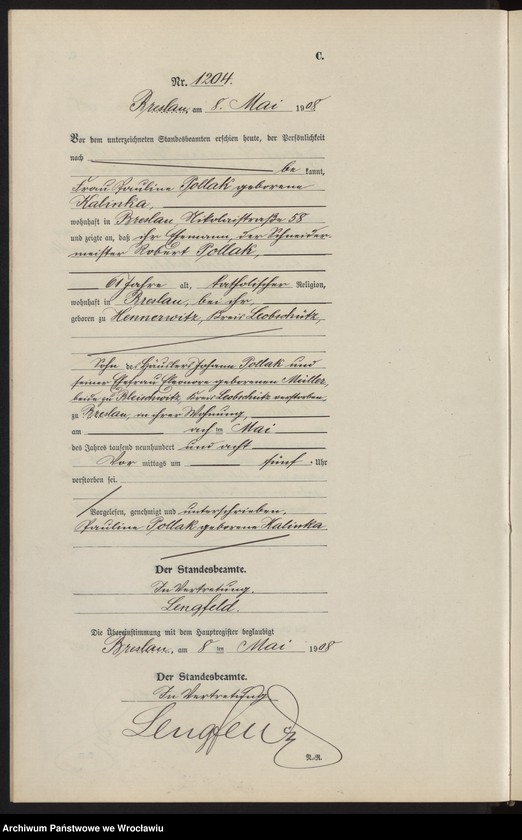 C.
Nr. 1204.
Breslau, am 8. Mai 1908
Vor dem unterzeichneten Standesbeamten erschien heute, der Persönlichkeit
nach be kannt,
Frau Pauline Pollak geborene
Kalinka,
wohnhaft in Breslau, Nikolaistraße 58
und zeigte an, daß ihr Ehemann, der Schneider-
meister Robert Pollak,
61 Jahre alt, katholischer Religion,
wohnhaft in Breslau, bei ihr,
geboren zu Hennerwitz, Kreis Leobschütz,
Sohn des Häuslers Johann Pollak und
seiner Ehefrau Eleonore geborenen Müller,
beide zu Bleischwitz, Kreis Leobschütz verstorben,
zu Breslau, in ihrer Wohnung,
am acht ten Mai
des Jahres tausend neunhundert und acht
Vor mittags um fünf Uhr
verstorben sei.
Vorgelesen, genehmigt und unterschrieben.
Pauline Pollak geborene Kalinka
Der Standesbeamte.
In Vertretung.
Lengfeld.
Die Übereinstimmung mit dem Hauptregister beglaubigt
Breslau, am 8 ten Mai 1908
Der Standesbeamte.
In Vertretung
Lengfeld
N.-R.
Archiwum Państwowe we Wrocławiu